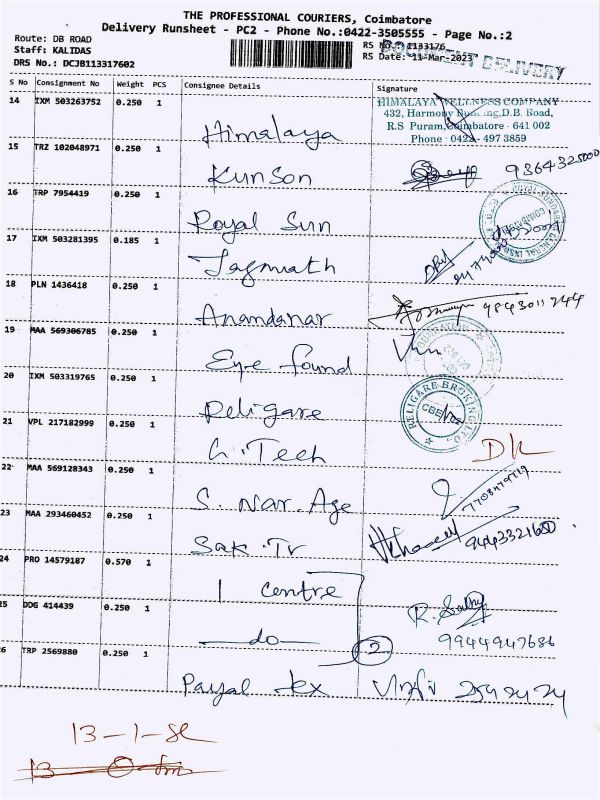 THE PROFESSIONAL COURIERS, Coimbatore
Delivery Runsheet - PC2 - Phone No.:0422-3505555 - Page No.:2
Route: DB ROAD
Staff: KALIDAS
DRS No.: DCJB113317602
RS No.: 1133176
RS Date: 11-Mar-2023
DOCUMENT DELIVERY
S No Consignment No Weight PCS Consignee Details Signature
14 IXM 503263752 0.250 1 Himalaya
HIMALAYA WELLNESS COMPANY
432, Harmony Building, D.B. Road,
R.S Puram, Coimbatore - 641 002
Phone - 0422 - 497 3859
15 TRZ 102048971 0.250 1 Kunson 9364325000
16 TRP 7954419 0.250 1 Royal Sun
17 IXM 503281395 0.185 1 Jagnnath
18 PLN 1436418 0.250 1 Anandanar 9843011244
19 MAA 569306785 0.250 1 Eye found
20 IXM 503319765 0.250 1 Religare
RELIGARE BROKING LTD.
CBE
21 VPL 217182999 0.250 1 G. Tech DK
22 MAA 569128343 0.250 1 S. Nar. Age
23 MAA 293460452 0.250 1 Sak. Tr
24 PRO 14579187 0.570 1 1 Centre
25 DDG 414439 0.250 1 do 2 9944947686
26 TRP 2569880 0.250 1 Payal Tex
13-1-
13